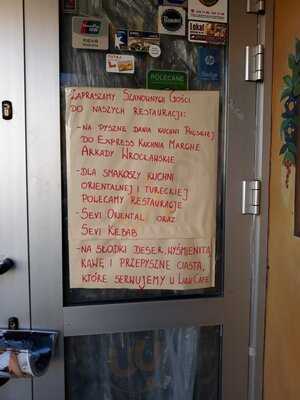 POLECANE
ZAPRASZAMY SZANOWNYCH GOŚCI
DO NASZYCH RESTAURACJI:
-NA PYSZNE DANIA KUCHNI POLSKIEJ
DO EXPRESS KUCHNIA MARCHE
ARKADY WROCŁAWSKIE
-DLA SMAKOSZY KUCHNI
ORIENTALNEJ I TURECKIEJ
POLECAMY RESTAURACJE
-SEVI ORIENTAL ORAZ
SEVI KEBAB
-NA SŁODKI DESER, WYŚMIENITĄ
KAWĘ I PRZEPYSZNE CIASTA,
KTÓRE SERWUJEMY U LULU CAFE